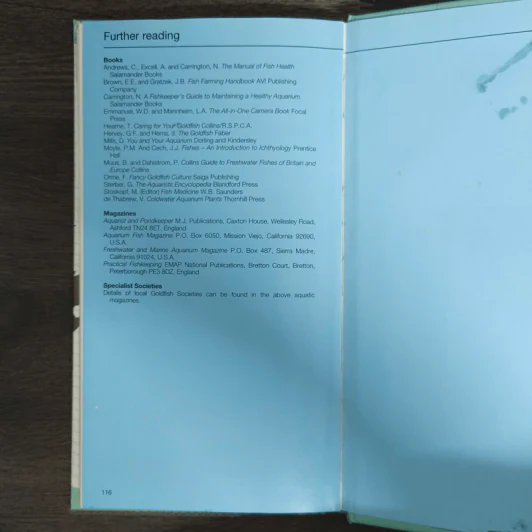 Further reading
Books
Andrews, C., Excell, A. and Carrington, N. The Manual of Fish Health
Salamander Books
Brown, E.E. and Gratzek, J.B. Fish Farming Handbook AVI Publishing
Company
Carrington, N. A Fishkeeper's Guide to Maintaining a Healthy Aquarium
Salamander Books
Emmanuals, W.D. and Mannheim, L.A. The All-in-One Camera Book Focal
Press
Hearne, T. Caring for Your Goldfish Collins/R.S.P.C.A.
Hervey, G.F. and Hems, J. The Goldfish Faber
Mills, D. You and Your Aquarium Dorling and Kindersley
Moyle, P.M. And Cech, J.J. Fishes – An Introduction to Ichthyology Prentice
Hall
Muus, B. and Dahlstrom, P. Collins Guide to Freshwater Fishes of Britain and
Europe Collins
Orme, F. Fancy Goldfish Culture Saiga Publishing
Sterba, G. The Aquarists Encyclopedia Blandford Press
Stoskopf, M. (Editor) Fish Medicine W.B. Saunders
de Thabrew, V. Coldwater Aquarium Plants Thornhill Press
Magazines
Aquarist and Pondkeeper M.J. Publications, Caxton House, Wellesley Road,
Ashford TN24 8ET, England
Aquarium Fish Magazine P.O. Box 6050, Mission Viejo, California 92690,
U.S.A.
Freshwater and Marine Aquarium Magazine P.O. Box 487, Sierra Madre,
California 91024, U.S.A.
Practical Fishkeeping EMAP National Publications, Bretton Court, Bretton,
Peterborough PE3 8DZ, England
Specialist Societies
Details of local Goldfish Societies can be found in the above aquatic
magazines.
116